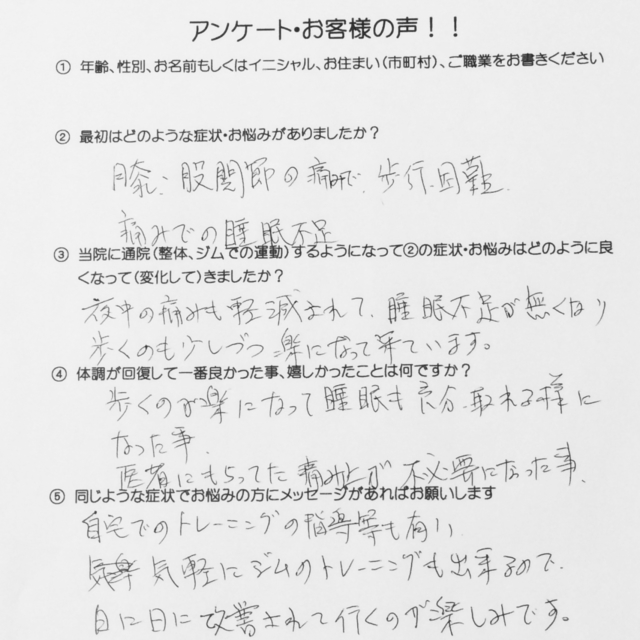 アンケート・お客様の声！！
① 年齢、性別、お名前もしくはイニシャル、お住まい（市町村）、ご職業をお書きください
② 最初はどのような症状・お悩みがありましたか？
膝、股関節の痛みで、歩行困難
痛みでの睡眠不足
③ 当院に通院（整体、ジムでの運動）するようになって②の症状・お悩みはどのように良
くなって（変化して）きましたか？
夜中の痛みも軽減されて、睡眠不足が無くなり
歩くのも少しづつ楽になって来ています。
④ 体調が回復して一番良かった事、嬉しかったことは何ですか？
歩くのが楽になって睡眠も充分、取れる様に
なった事、
医者にもらってた痛み止が不必要になった事、
⑤ 同じような症状でお悩みの方にメッセージがあればお願いします
自宅でのトレーニングの指導等も有り、
気軽にジムのトレーニングも出来るので、
日に日に改善されて行くのが楽しみです。